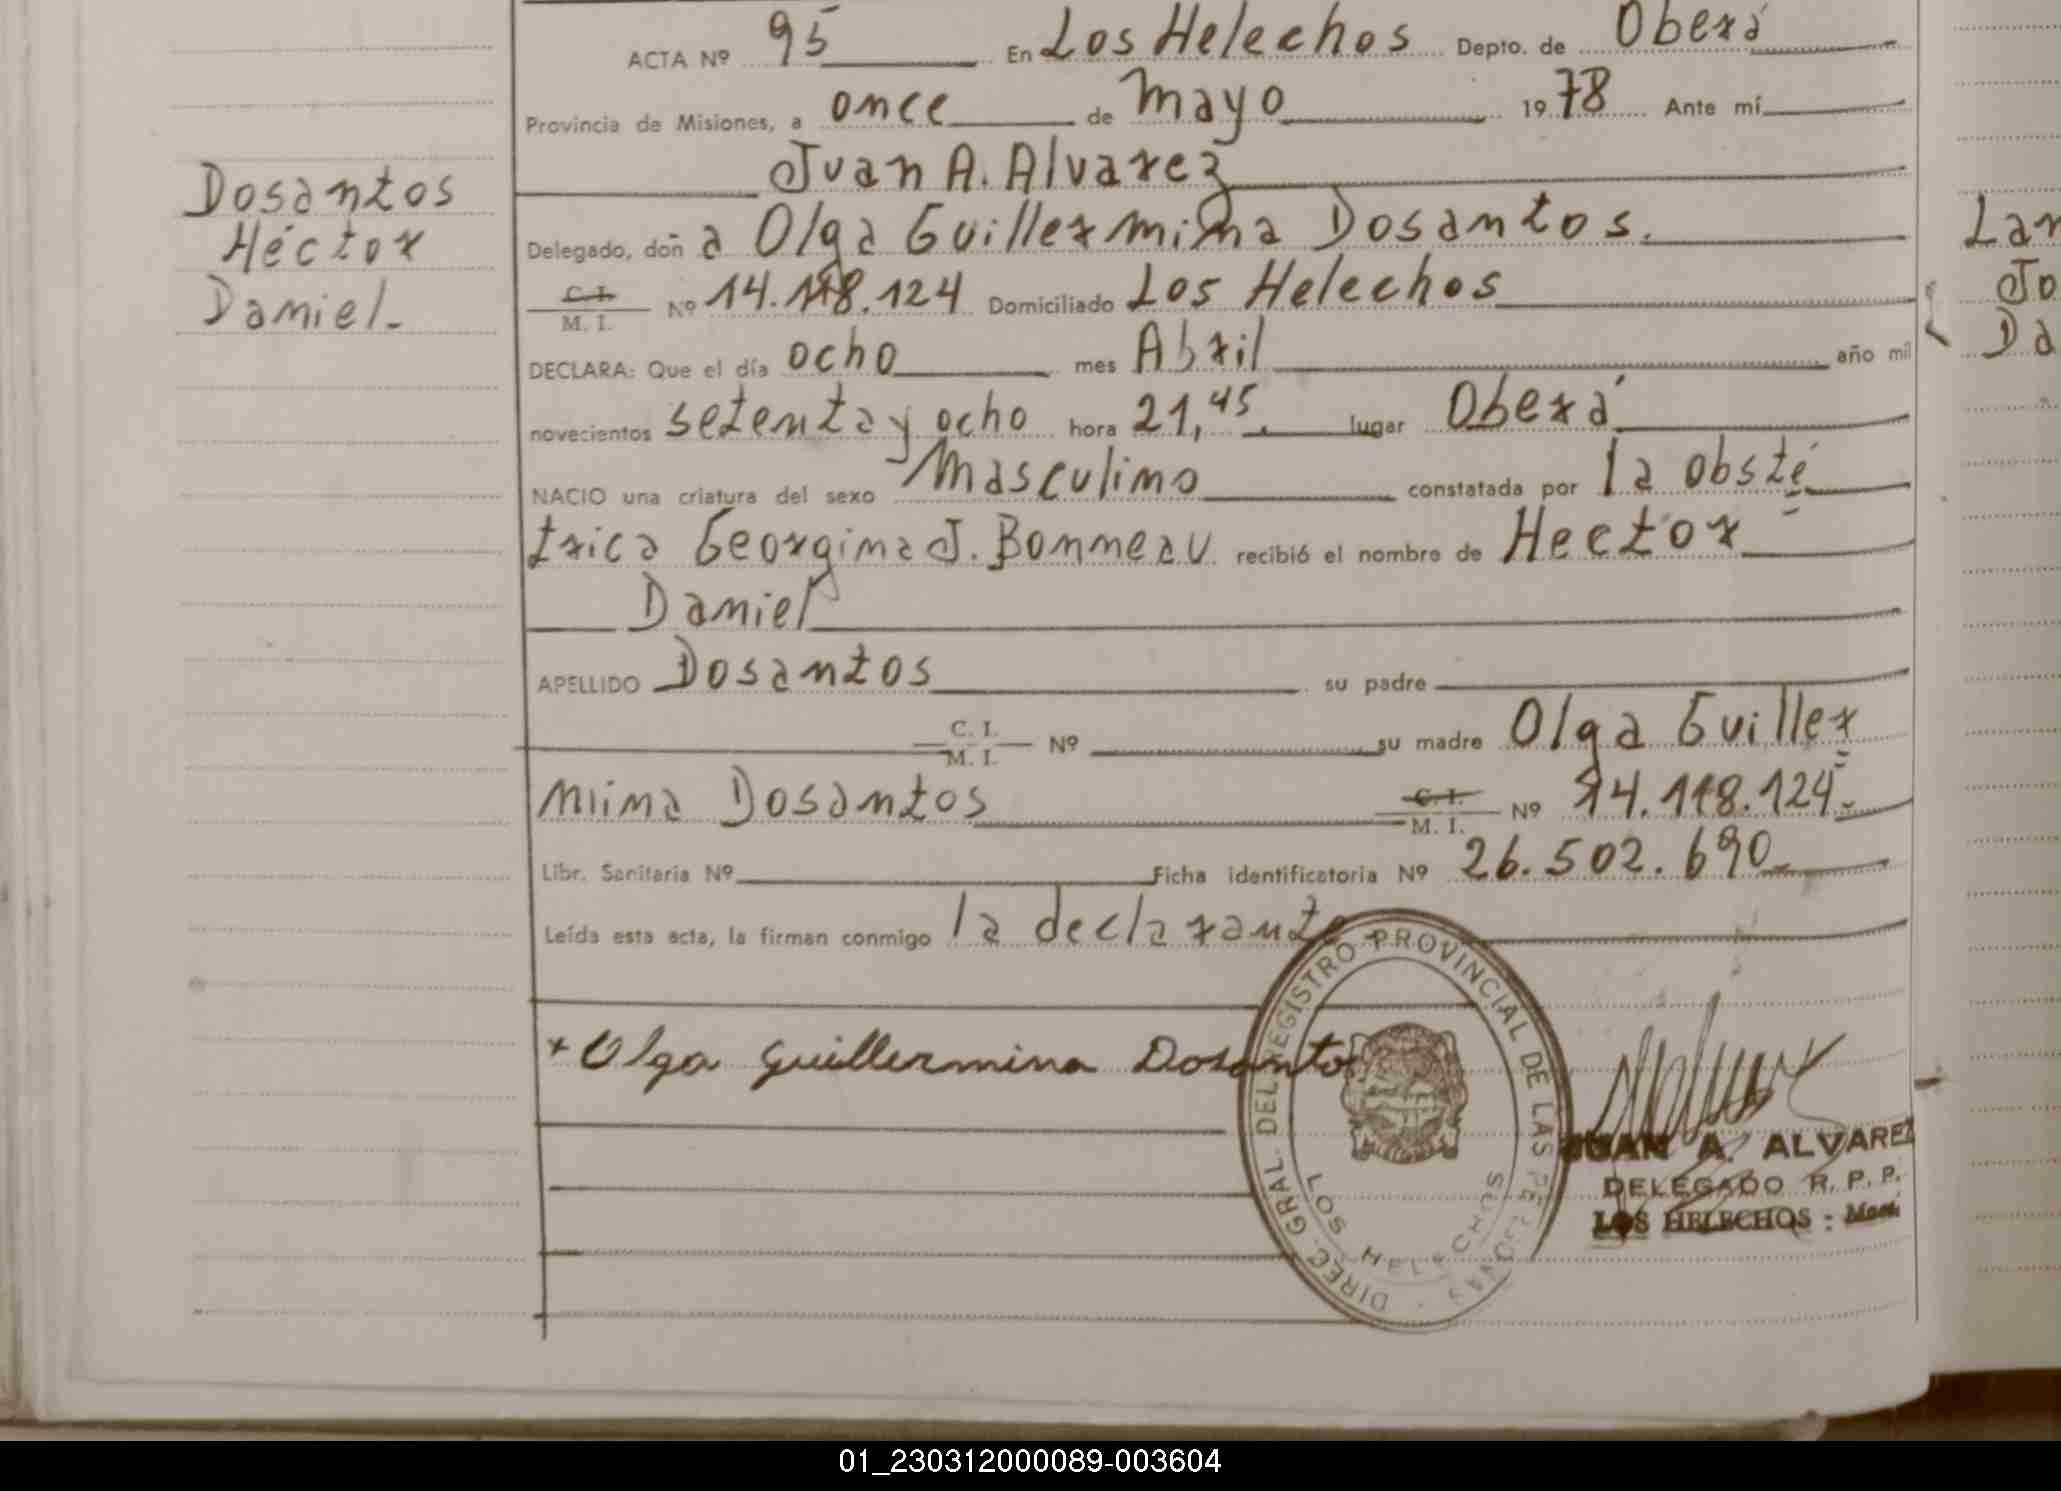 ACTA Nº 95 En Los Helechos Depto. de Oberá
Provincia de Misiones, a once de Mayo 1978 Ante mí
Juan A. Alvarez
Dosantos
Héctor
Daniel.-
Delegado, doña Olga Guillermina Dosantos.
C. I. / M. I. Nº 14.118.124 Domiciliado Los Helechos
DECLARA: Que el día ocho mes Abril año mil
novecientos setenta y ocho hora 21,45. lugar Oberá
NACIO una criatura del sexo Masculino constatada por la obsté
trica Georgina J. Bonneau recibió el nombre de Hector
Daniel
APELLIDO Dosantos su padre
C. I. / M. I. Nº su madre Olga Guiller=
mina Dosantos C. I. / M. I. Nº 14.118.124.-
Libr. Sanitaria Nº Ficha identificatoria Nº 26.502.690.-
Leída esta acta, la firman conmigo la declarante
+ Olga Guillermina Dosantos
DIREC. GRAL. DEL REGISTRO PROVINCIAL DE LAS PERSONAS
LOS HELECHOS
JUAN A. ALVAREZ
DELEGADO R. P. P.
LOS HELECHOS - Mnes.
Lar
Jo
Da
01_230312000089-003604